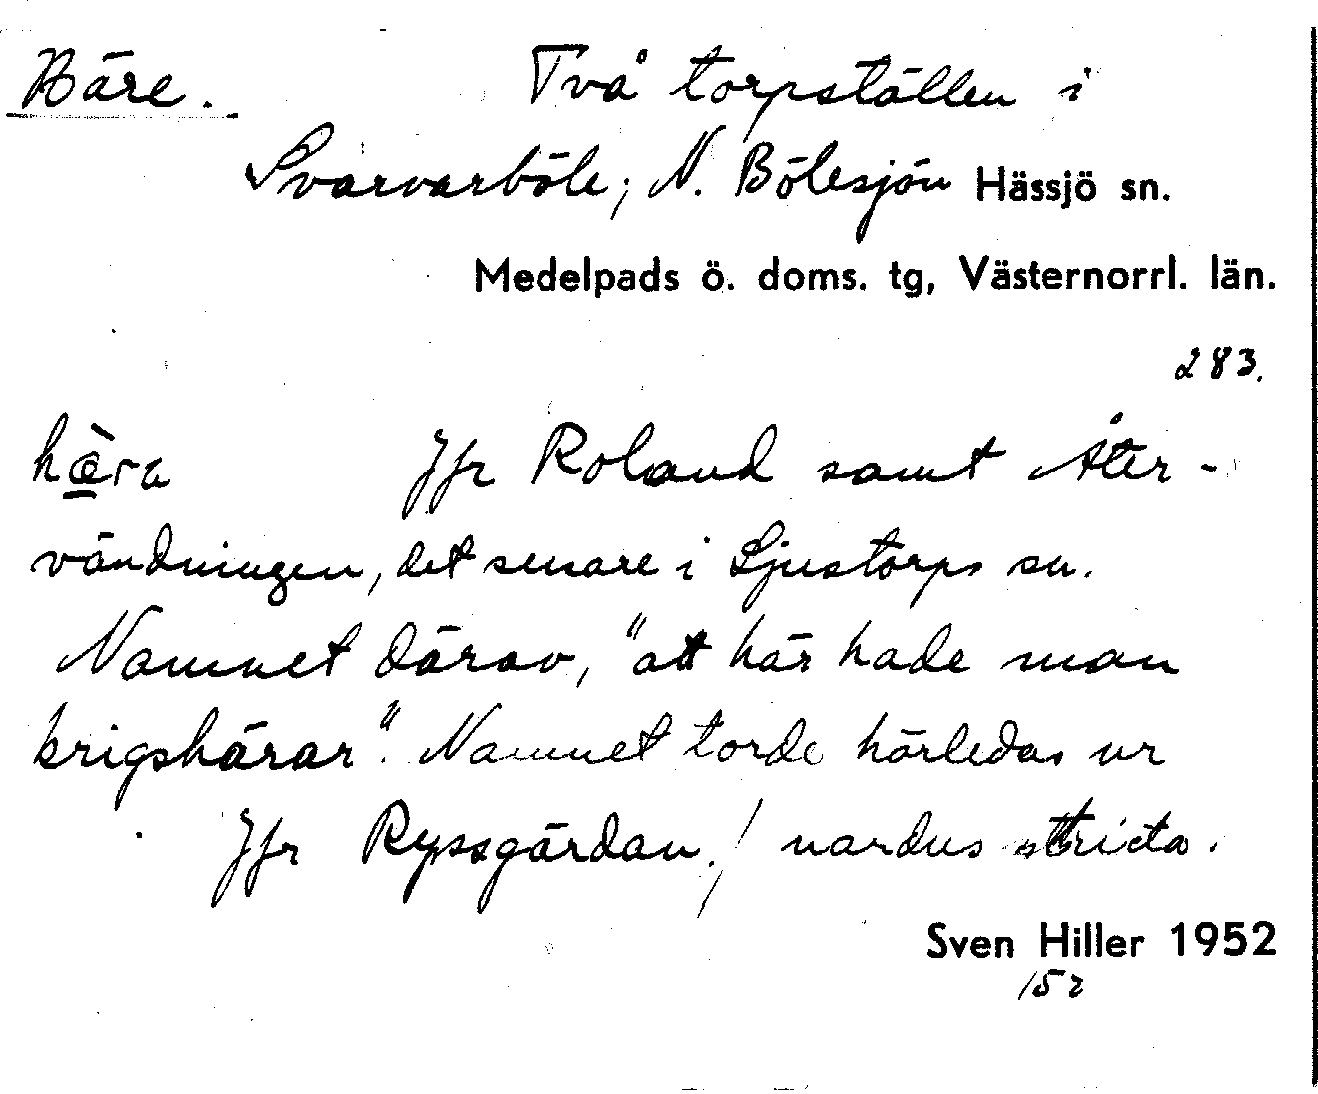 Häre. Två torpställen i
Svarvarböle, N. Bölesjön Hässjö sn.
Medelpads ö. doms. tg, Västernorrl. län.
283.
hæ̀ra Jfr Roland samt Åter-
vändningen, det senare i Ljustorps sn.
Namnet därav, "att här hade man
krigshärar". Namnet torde härledas ur
Jfr Ryssgärdan. / nardus stricta.
Sven Hiller 1952
152